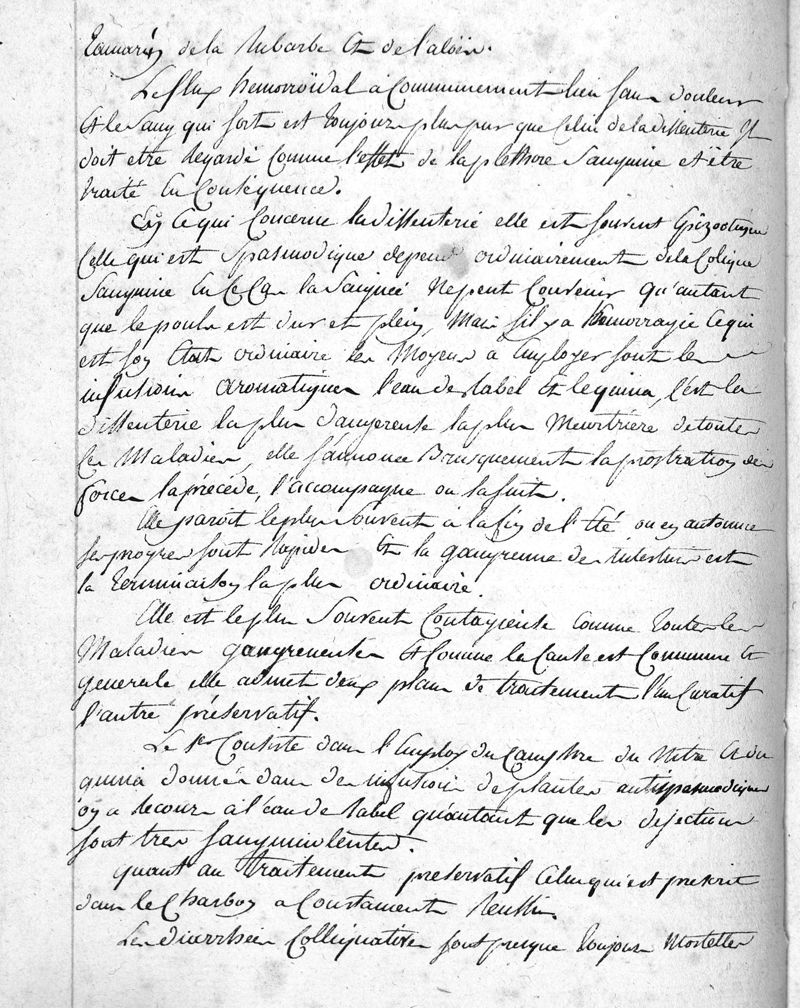 tamarin de la rubarbe et de l'aloën.
Le flux hemorroïdal a communement lieu sans douleur
et le sang qui sort est toujours plus pur que celui de la dissenterie Il
doit etre regardé comme l'effet de la plethore sanguine et être
traité en conséquence.
En ce qui concerne la dissenterie elle est souvent épizootique
celle qui est spasmodique depend ordinairement de la colique
sanguine en ce cas la saignée ne peut convenir qu'autant
que le pouls est dur et plein, mais s'il y a hemorragie ce qui
est son etat ordinaire les moyens a employer sont les
infusions aromatiques l'eau de rabel et le quina, c'est la
dissenterie la plus dangereuse la plus meurtriere de toutes
les maladies, elle s'annonce brusquement la prostration des
forces la précéde, l'accompagne ou la suit.
Elle paroit le plus souvent à la fin de l'été ou en automne
ses progres sont rapides et la gangrenne des intestins est
la terminaison la plus ordinaire.
Elle est le plus souvent contagieuse comme toutes les
maladies gangreneuses et comme la cause est commune et
generale elle admet deux plans de traitement l'un curatif
l'autre préservatif.
Le 1er consiste dans l'employ du camphre du nitre et du
quina donnés dans des infusions de plantes antispasmodiques
on a recours à l'eau de rabel qu'autant que les dejections
sont tres sanguinolentes.
quant au traitement preservatif celui qui est prescrit
dans le charbon a constament reussi.
Les diarrhées colliquatives sont presque toujours mortelles